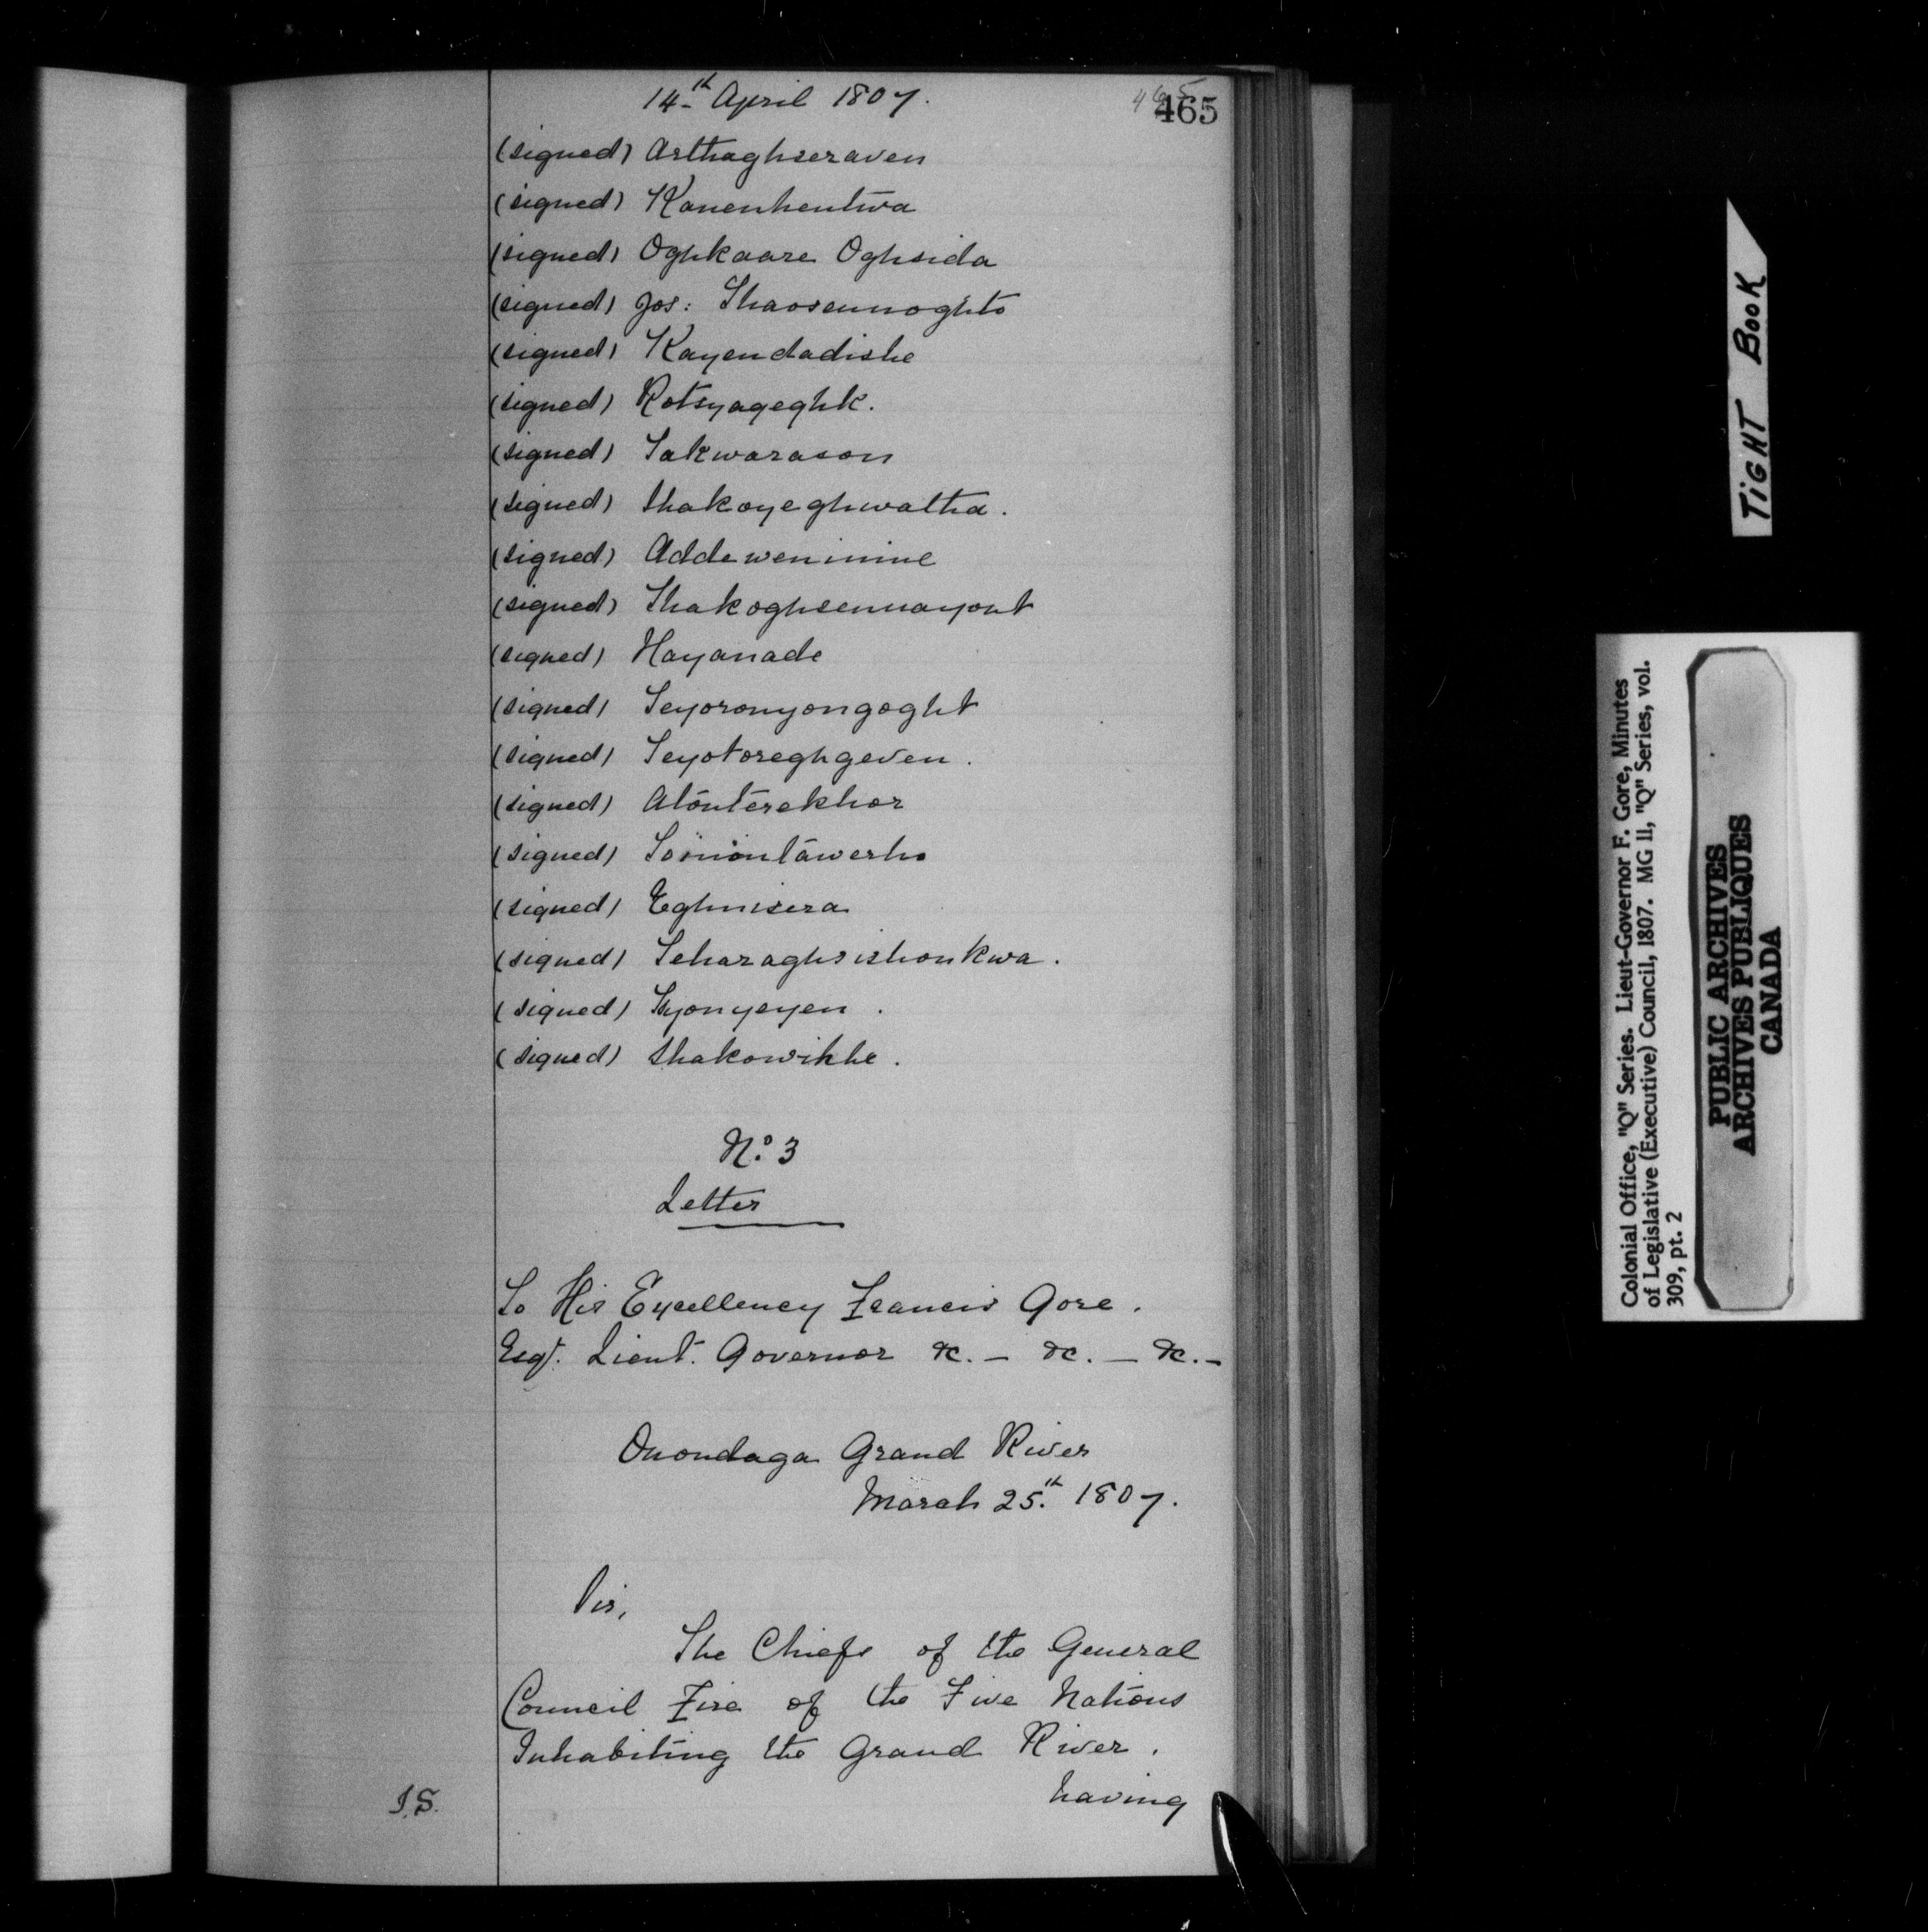 14th April 1807.
465
465
(signed) Arthaghseraven
(signed) Kanenhentwa
(signed) Oghkaare Oghsida
(signed) Jos: Thaosennoghto
(signed) Kayendadishe
(signed) Rotsyageghk.
(signed) Takwarason
(signed) Shakoyeghwaltha.
(signed) Addeweninine
(signed) Shakoghsennayont
(signed) Hayanade
(signed) Teyoronyongoght
(signed) Teyotoreghgeven.
(signed) Atonterekhor
(signed)
(signed) Eghnisera
(signed) Teharaghsishonkwa.
(signed) Tyonyeyen.
(signed) Shakowikhe.
No. 3
Letter
To His Excellency Francis Gore.
Esqr. Lieut. Governor &c. — &c. — &c. —
Onondaga Grand River
March 25th. 1807.
Sir,
The Chiefs of the General
Council Fire of the Five Nations
Inhabiting the Grand River.
having
I.S.
TIGHT BOOK
Colonial Office, "Q" Series. Lieut-Governor F. Gore, Minutes
of Legislative (Executive) Council, 1807. MG 11, "Q" Series, vol.
309, pt. 2
PUBLIC ARCHIVES
ARCHIVES PUBLIQUES
CANADA